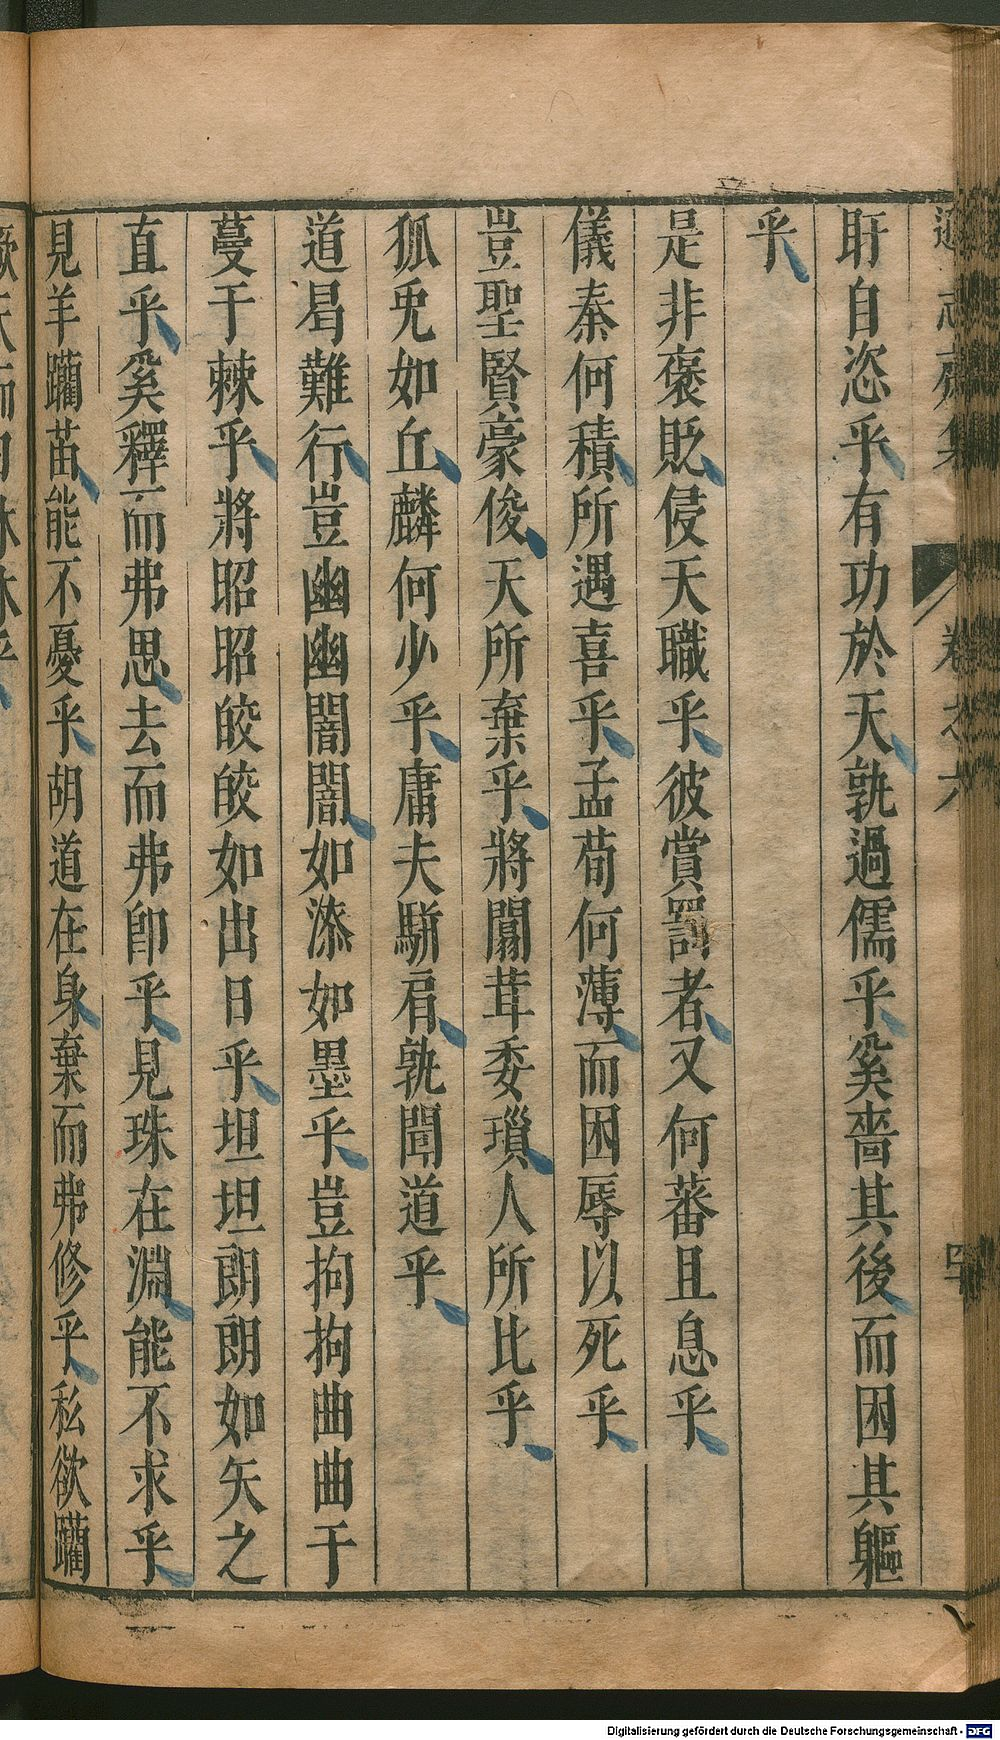 盰自恣乎有功於天孰過儒乎奚嗇其後而困其軀
乎
是非褒貶侵天職乎彼賞罰者又何蕃且息乎
儀秦何積所遇喜乎孟荀何薄而困辱以死乎
豈聖賢豪俊天所棄乎將闒茸委瑣人所比乎
狐兎如丘麟何少乎庸夫駢肩孰聞道乎
道曷難行豈幽幽闇闇如漆如墨乎豈拘拘曲曲于
蔓于棘乎將昭昭皎皎如出日乎坦坦朗朗如矢之
直乎奚釋而弗思去而弗卽乎見珠在淵能不求乎
見羊躪苗能不憂乎胡道在身棄而弗修乎私欲躪
卷之六
Digitalisierung gefördert durch die Deutsche Forschungsgemeinschaft - DFG